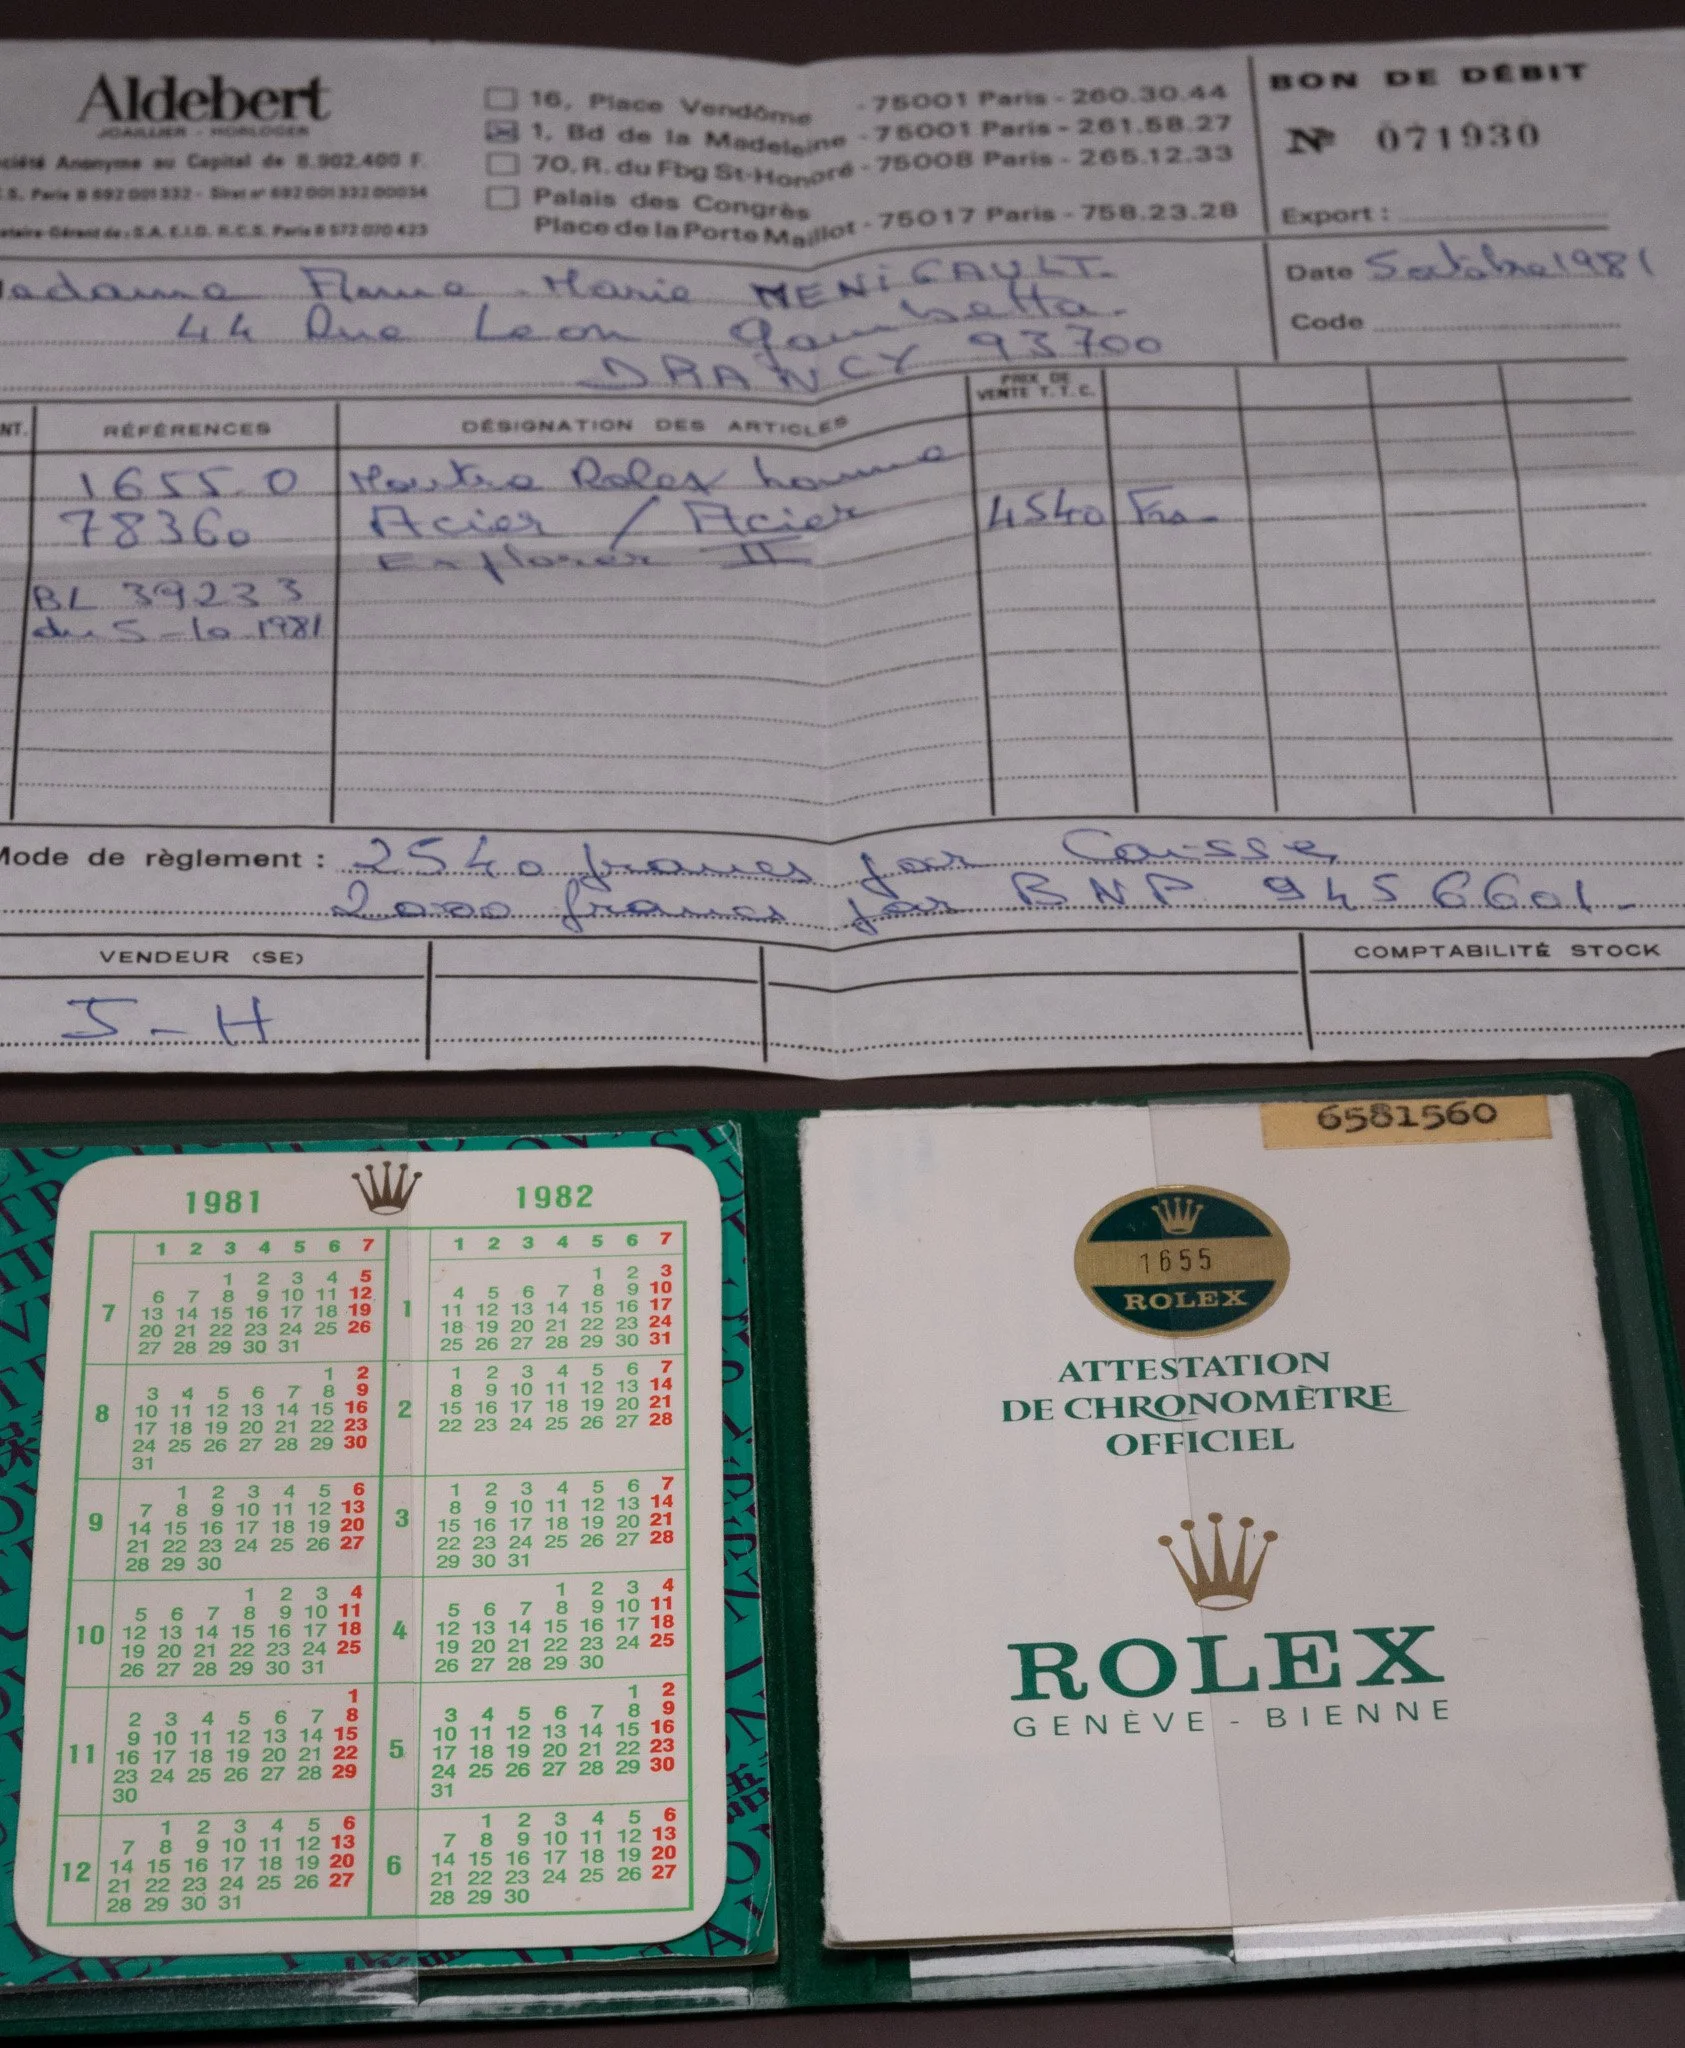 Aldebert
JOAILLIER - HORLOGER
ciété Anonyme au Capital de 8.902.400 F.
.S. Paris B 692 001 332 - Siret nº 692 001 332 00034
taire-Gérant de : S.A. E.I.D. R.C.S. Paris B 572 070 423
16, Place Vendôme - 75001 Paris - 260.30.44
1, Bd de la Madeleine - 75001 Paris - 261.58.27
70, R. du Fbg St-Honoré - 75008 Paris - 265.12.33
Palais des Congrès
Place de la Porte Maillot - 75017 Paris - 758.23.28
BON DE DÉBIT
Nº 071930
Export :
Date 5 octobre 1981
Code
adame Anne-Marie MENIGAULT.
44 Rue Leon Gambetta.
DRANCY 93700
NT. RÉFÉRENCES DÉSIGNATION DES ARTICLES PRIX DE VENTE T.T.C.
1655.0 Montre Rolex homme
78360 Acier / Acier 4540 Frs
Explorer II
BL 39233
du 5-10.1981
Mode de règlement : 2540 francs par Caisse
2000 francs par BNP 9456601.
VENDEUR (SE) COMPTABILITÉ STOCK
J-H
1981 1982
1 2 3 4 5 6 7
7
1 2 3 4 5
6 7 8 9 10 11 12
13 14 15 16 17 18 19
20 21 22 23 24 25 26
27 28 29 30 31
8
1 2
3 4 5 6 7 8 9
10 11 12 13 14 15 16
17 18 19 20 21 22 23
24 25 26 27 28 29 30
31
9
1 2 3 4 5 6
7 8 9 10 11 12 13
14 15 16 17 18 19 20
21 22 23 24 25 26 27
28 29 30
10
1 2 3 4
5 6 7 8 9 10 11
12 13 14 15 16 17 18
19 20 21 22 23 24 25
26 27 28 29 30 31
11
1
2 3 4 5 6 7 8
9 10 11 12 13 14 15
16 17 18 19 20 21 22
23 24 25 26 27 28 29
30
12
1 2 3 4 5 6
7 8 9 10 11 12 13
14 15 16 17 18 19 20
21 22 23 24 25 26 27
28 29 30 31
1 2 3 4 5 6 7
1
1 2 3
4 5 6 7 8 9 10
11 12 13 14 15 16 17
18 19 20 21 22 23 24
25 26 27 28 29 30 31
2
1 2 3 4 5 6 7
8 9 10 11 12 13 14
15 16 17 18 19 20 21
22 23 24 25 26 27 28
3
1 2 3 4 5 6 7
8 9 10 11 12 13 14
15 16 17 18 19 20 21
22 23 24 25 26 27 28
29 30 31
4
1 2 3 4
5 6 7 8 9 10 11
12 13 14 15 16 17 18
19 20 21 22 23 24 25
26 27 28 29 30
5
1 2
3 4 5 6 7 8 9
10 11 12 13 14 15 16
17 18 19 20 21 22 23
24 25 26 27 28 29 30
31
6
1 2 3 4 5 6
7 8 9 10 11 12 13
14 15 16 17 18 19 20
21 22 23 24 25 26 27
28 29 30
6581560
1655
ROLEX
ATTESTATION
DE CHRONOMÈTRE
OFFICIEL
ROLEX
GENÈVE - BIENNE